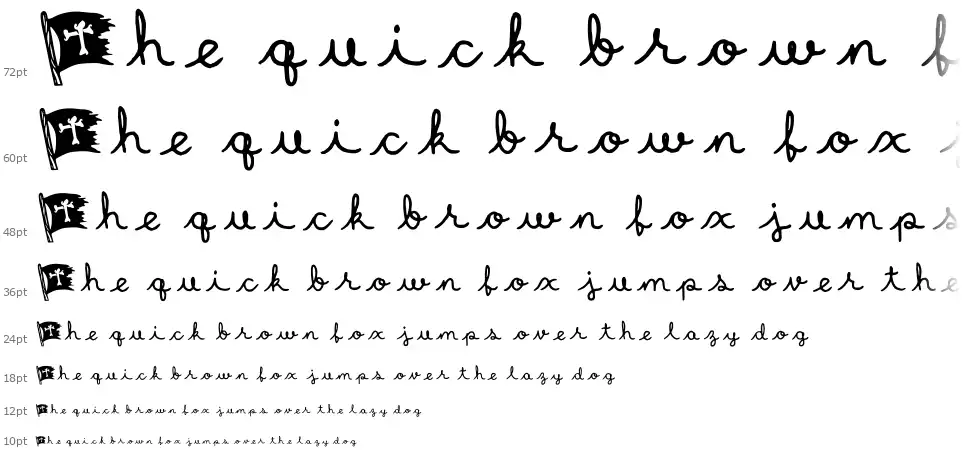 72pt The quick brown f
60pt The quick brown fox
48pt The quick brown fox jumps
36pt The quick brown fox jumps over the
24pt The quick brown fox jumps over the lazy dog
18pt The quick brown fox jumps over the lazy dog
12pt The quick brown fox jumps over the lazy dog
10pt The quick brown fox jumps over the lazy dog